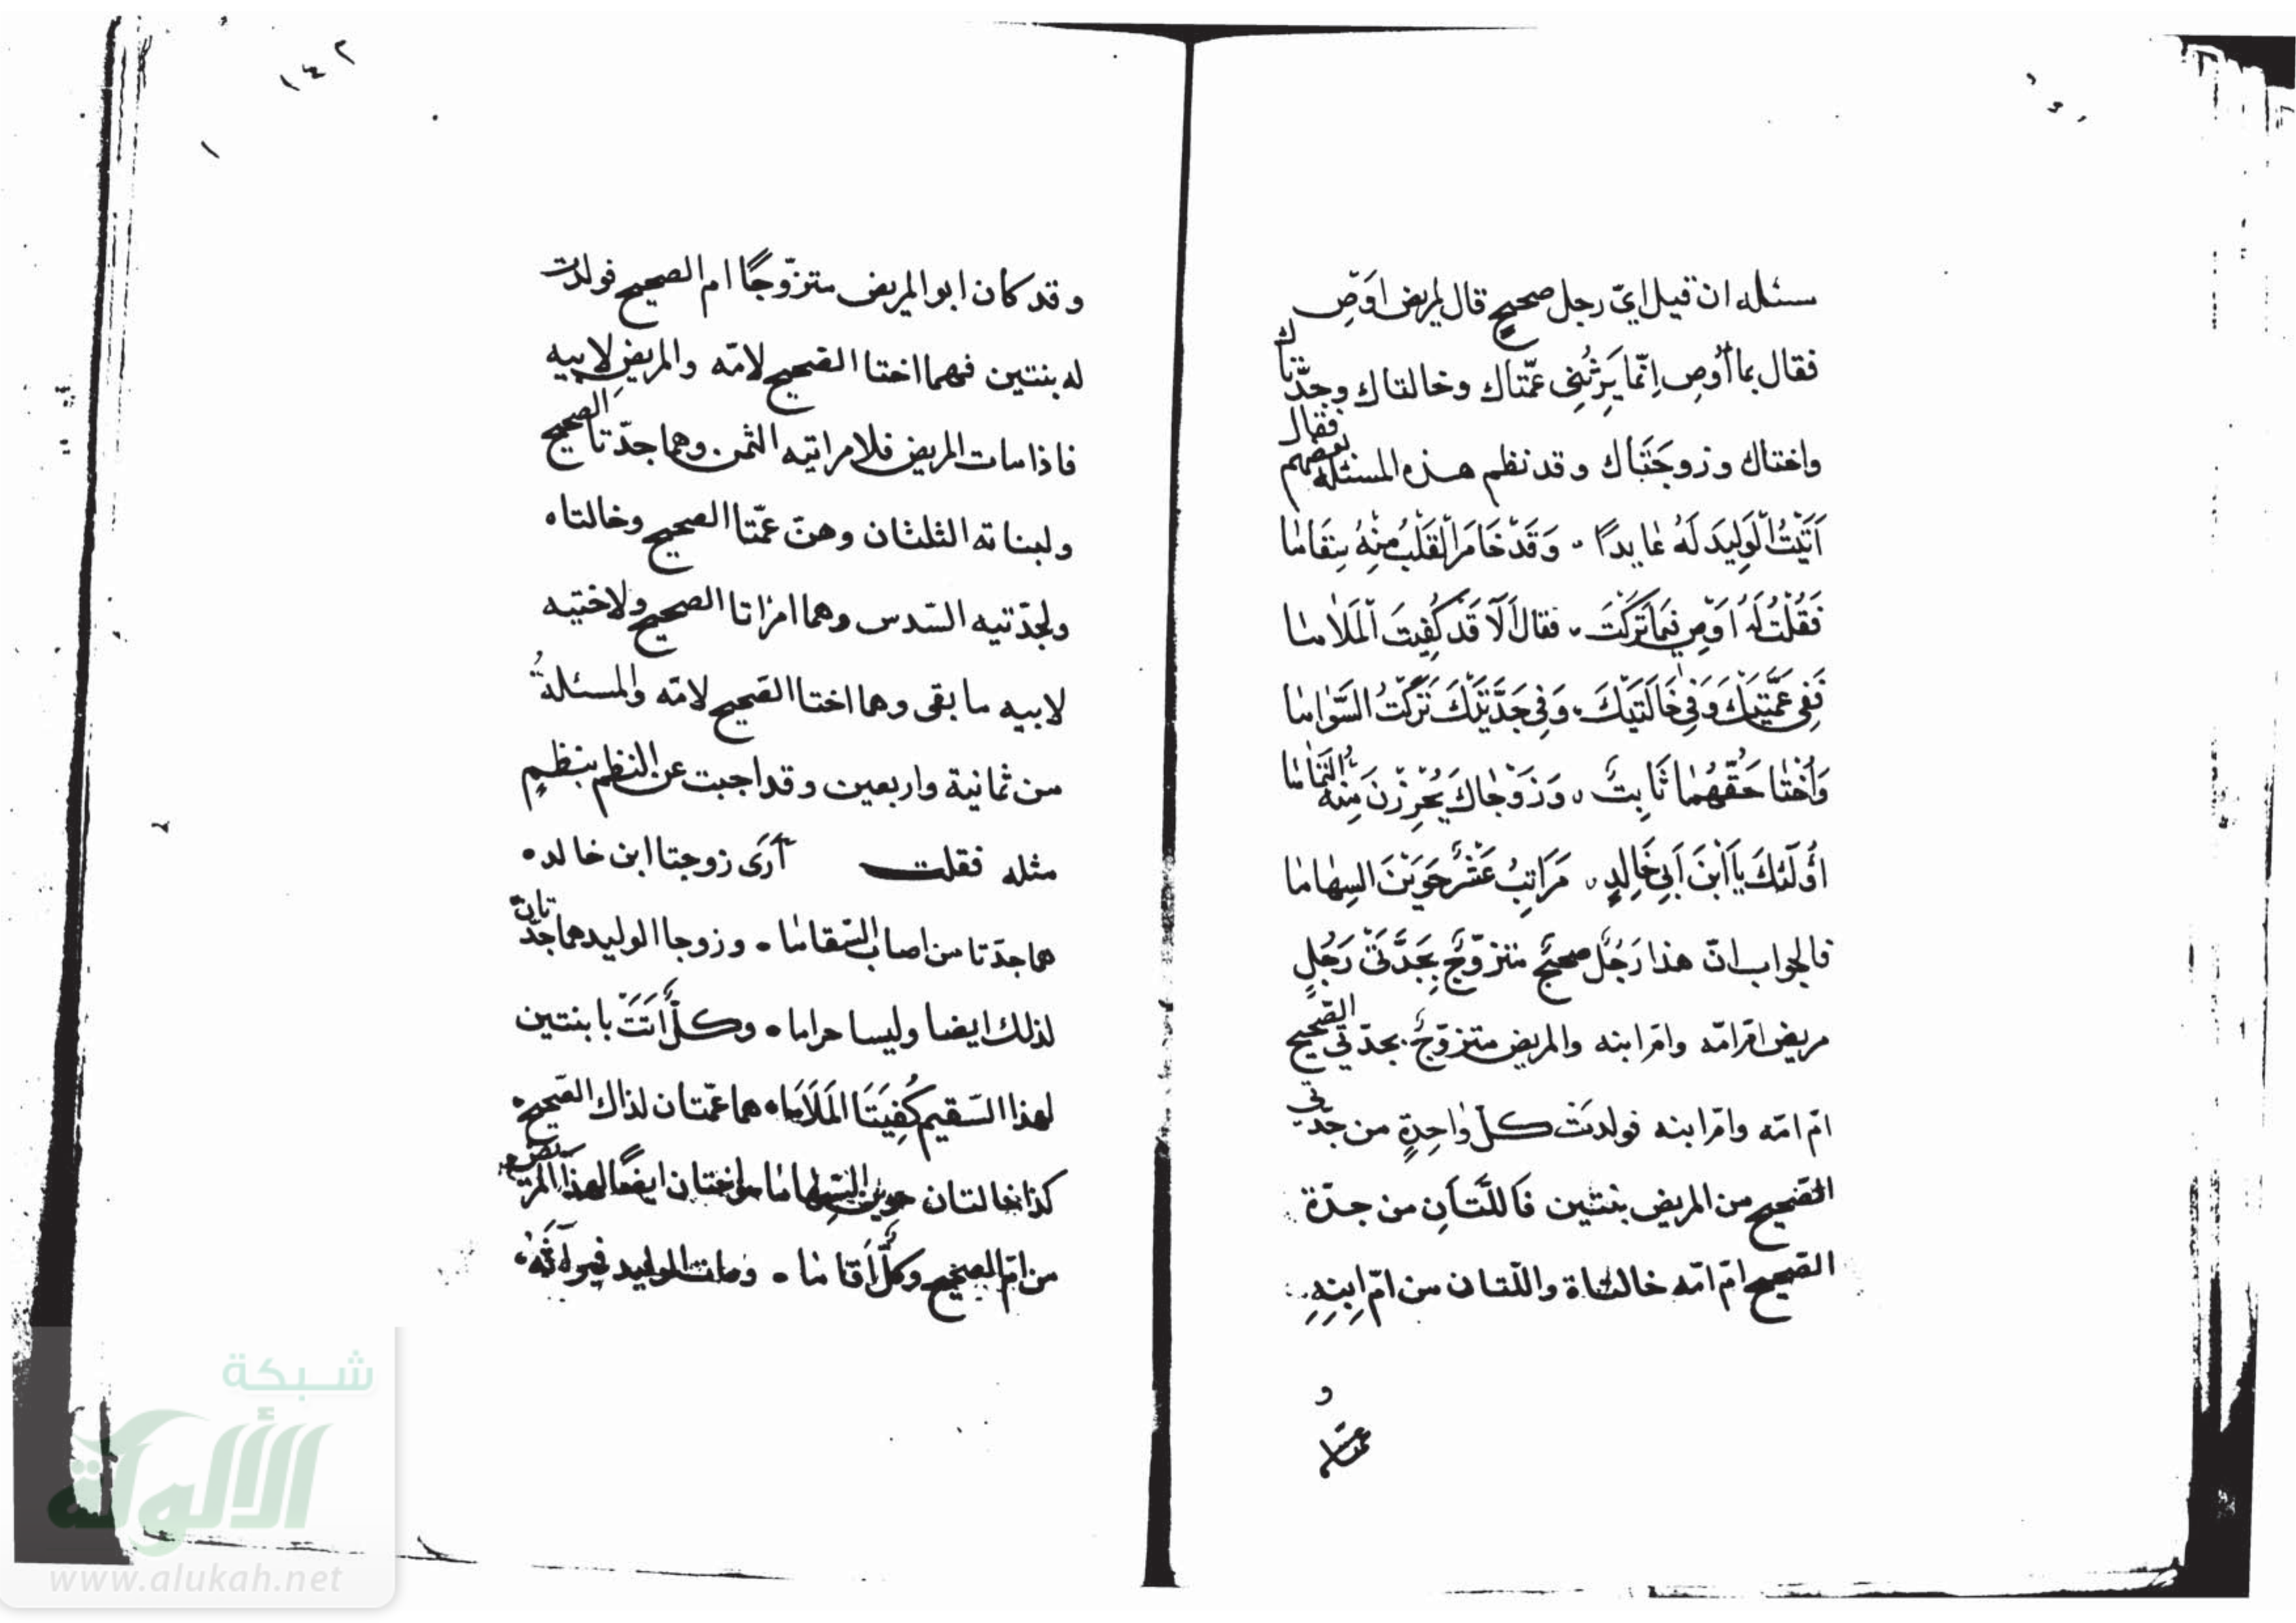 مسئله ان قيل ايّ رجل صحيحٍ قال لمريض اوَصِ
فقال بما أُوصِ اِنّما يَرِثُنِى عمّتاك وخالتاك وجدّتاك
واختاك وزوجَتَاك وقد نظم هذه المسئله بعضهم فقال
اَتَيْتُ الْوَلِيدَ لَهُ عَايدًا ۰ وَقَدْ خَامَرَ الْقَلْبُ مِنْهُ سِقَامَا
فَقُلْتُ لَهُ اَوْصِ فِيمَا تَرَكْتَ ۰ فقال اَلَا قَدْ كُفِيتَ الْمَلَامَا
فَفِى عَمَّتَيْكَ وَفِى خَالَتَيْكَ ۰ وَفِى جَدَّتَيْكَ تَرَكْتُ السَّوَامَا
وَاُخْتَا حَقُّهُمَا ثَابِتٌ ۰ وَزَوْجَاكَ يُحْرِزْنَ مِنْهُ التَّمَامَا
اُولَٓئكَ يَا اَبْنَ اَبِى خَالِدٍ ۰ مَرَاتِبُ عَشْرٌ حَوَيْنَ السِهَامَا
فالجواب انّ هذا رَجُلٌ صحيحٌ متزوّجٌ بِجَدَّتَىْ رَجُلٍ
مريض امّ امّه وامّ ابنه والمريض متزوّجٌ بجدّتي الصّحيح
امّ امّه وامّ ابنه فولدتْ كلّ واحِدةٍ من جدّتي
الصّحيح من المريض بنتين فَاللّتَانِ من جدّة
الصّحيح امّ امّه خالتاة واللّتان من امّ ابنِهِ
و
عمّتاه
١٤٢
وقد كان ابو المريض متزوّجًا ام الصحيح فولدت
له بنتين فهما اختا الصّحيح لامّه والمريض لابيه
فاذا مات المريض فلامراتيه الثّمن وهما جدّتا الصّحيح
ولبناته الثلثان وهنّ عمّتا الصحيح وخالتاه
ولجدّتيه السّدس وهما امراتا الصحيح ولاختيه
لابيه ما بقى وهما اختا الصّحيح لامّه والمسئلةُ
من ثمانية واربعين وقد اجبت عن النظم بنظمٍ
مثله فقلت اَرَى زوجتا ابن خالد ۰
هما جدّتا من اصاب السّقاما ۰ وزوجا الوليد هما جدّتان
لذلك ايضا وليسا حراما ۰ وكلٌّ اَتَتْ بابنتين
لهذا السّقيم كُفِيَتَا المَلَامَا ۰ هما عمّتان لذاك الصّحيح ۰
كذا خالتان حوين السّهاما واختان ايضًا لهذا المريض
من امّ الصحيح وكلٌّ اَقاما ۰ ومات الوليد فميراثُهُ
شبكة
الألوكة
www.alukah.net